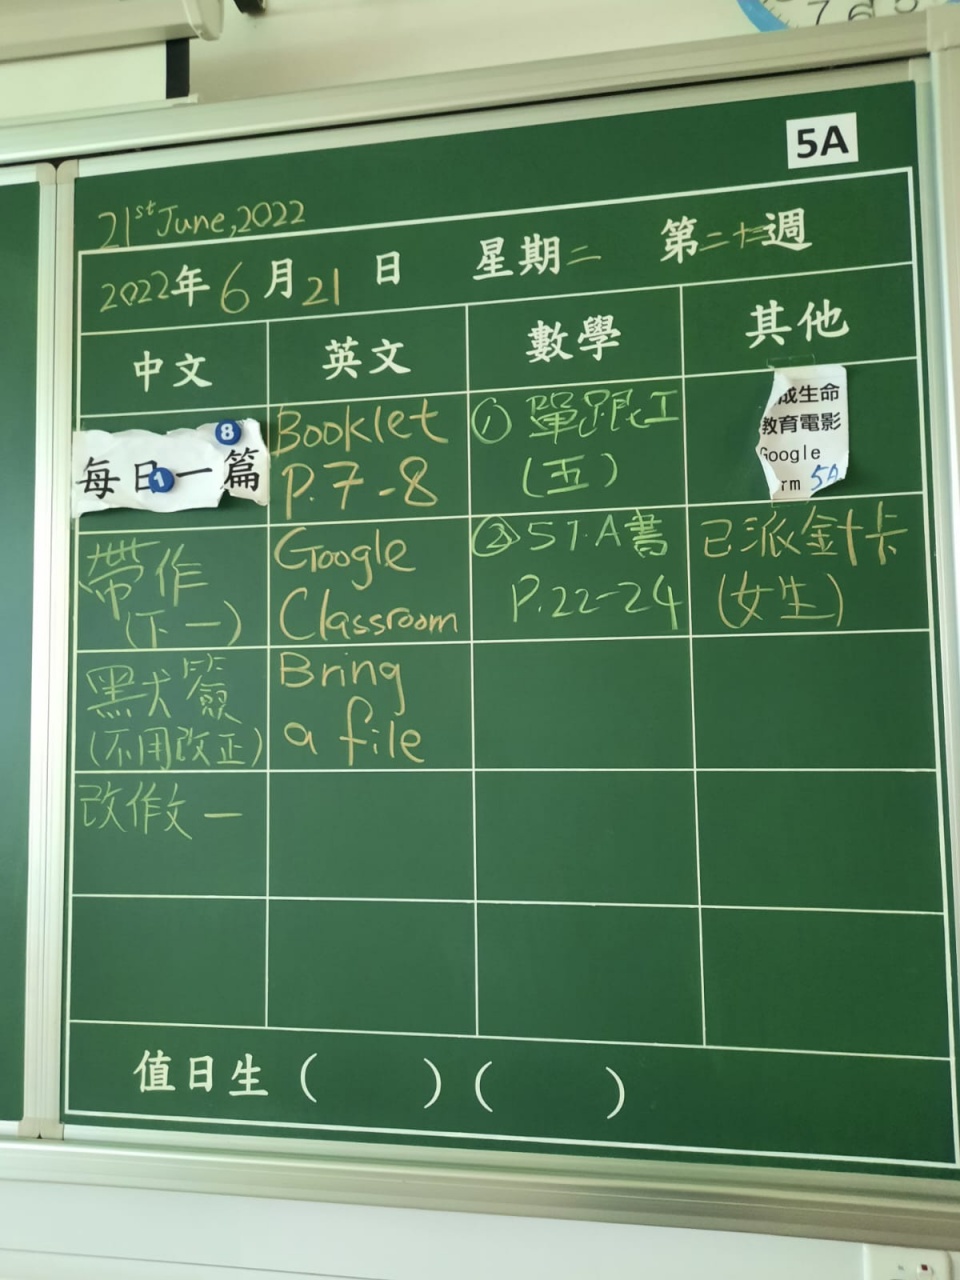 7 6 5
5A
21st June, 2022
2022年6月21日 星期二 第二十三週
中文 英文 數學 其他
每日一篇
8
1
帶作
(下一)
默簽
(不用改正)
改作文一
Booklet
P.7-8
Google
Classroom
Bring
a file
① 單跟工
(五)
② 5下A書
P.22-24
成生命
教育電影
Google
rm 5A
已派金十卡
(女生)
值日生 ( ) ( )